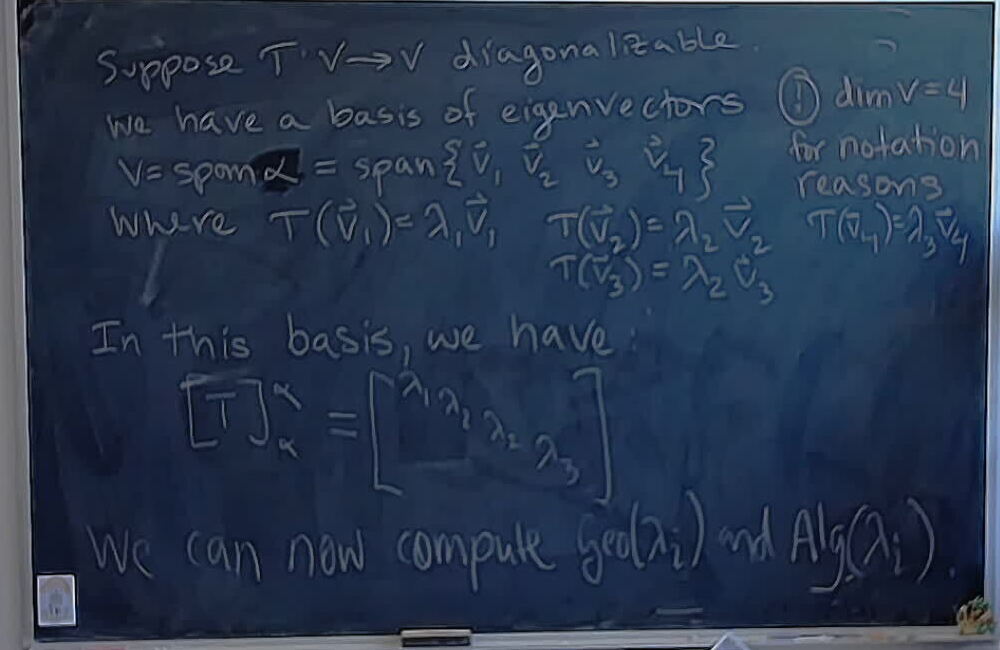 Suppose T: V→V diagonalizable.
We have a basis of eigenvectors
V = span α = span{v⃗₁ v⃗₂ v⃗₃ v⃗₄}
where T(v⃗₁)=λ₁v⃗₁ T(v⃗₂)=λ₂v⃗₂ T(v⃗₄)=λ₃v⃗₄
T(v⃗₃)=λ₂v⃗₃
! dim V=4
for notation
reasons
In this basis, we have:
[T]^α_α = [λ₁ λ₂ λ₂ λ₃]
We can now compute Geo(λᵢ) and Alg(λᵢ).